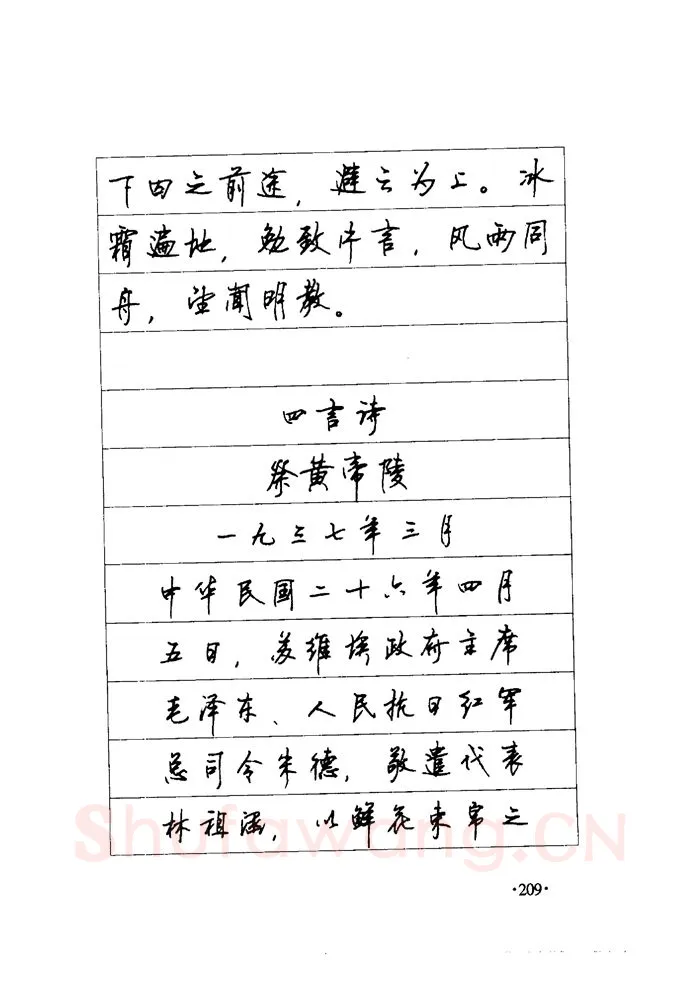 下之前途，避之为上。冰
霜遍地，勉致片言，风雨同
舟，望闻明教。
四言诗
祭黄帝陵
一九三七年三月
中华民国二十六年四月
五日，苏维埃政府主席
毛泽东、人民抗日红军
总司令朱德，敬遣代表
林祖涵，以鲜花束帛之
·209·
Shufawang.CN